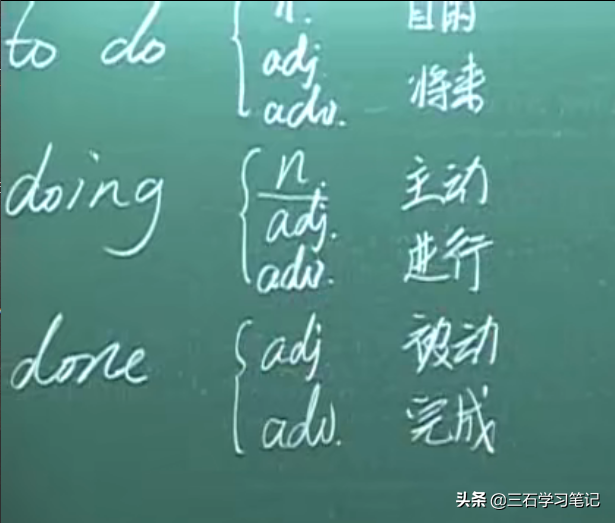 to do { n. 目的
adj. 将来
adv.
doing { n. 主动
adj.
adv. 进行
done { adj 被动
adv. 完成
头条 @三石学习笔记